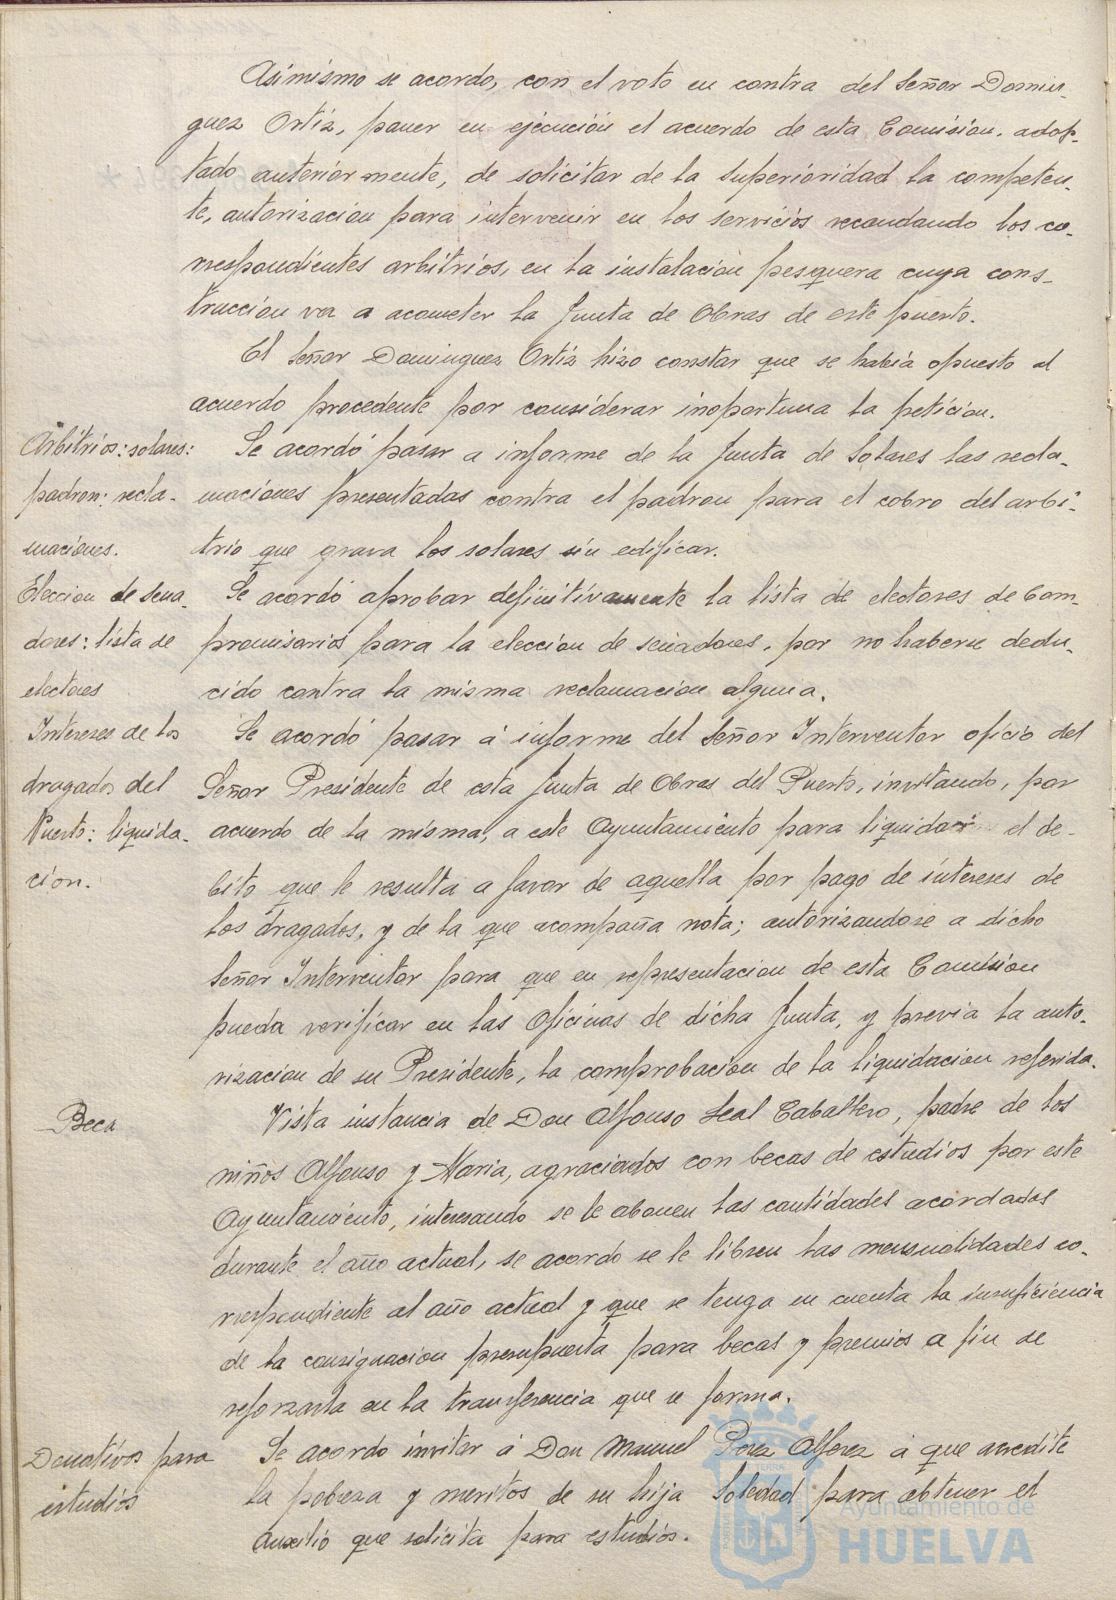 Asimismo se acordo, con el voto en contra del Señor Domin-
guez Ortiz, poner en ejecución el acuerdo de esta Comisión, adop-
tado anteriormente, de solicitar de la Superioridad la competen-
te, autorizacion para intervenir en los servicios recaudando los co-
rrespondientes arbitrios, en la instalación pesquera cuya cons-
truccion va a acometer la Junta de Obras de este puerto.
El Señor Dominguez Ortiz hizo constar que se habia opuesto al
acuerdo precedente por considerar inoportuna la petición.
Arbitrios: solares:
padron: recla-
maciones.
Se acordó pasar a informe de la Junta de Solares las recla-
maciones presentadas contra el padron para el cobro del arbi-
trio que grava los solares sin edificar.
Eleccion de sena-
dores: lista de
electores
Se acordó aprobar definitivamente la lista de electores de Com-
promisarios para la eleccion de senadores, por no haberse dedu-
cido contra la misma reclamacion alguna.
Intereses de los
dragados del
Puerto: liquida-
cion.
Se acordó pasar á informe del Señor Interventor oficio del
Señor Presidente de esta Junta de Obras del Puerto, invitando, por
acuerdo de la misma, a este Ayuntamiento para liquidar el de-
bito que le resulta a favor de aquella por pago de intereses de
los dragados, y de la que acompaña nota; autorizandose a dicho
Señor Interventor para que en representacion de esta Comision
pueda verificar en las Oficinas de dicha Junta, y previa la auto-
rizacion de su Presidente, la comprobacion de la liquidacion referida.
Beca
Vista instancia de Don Alfonso Leal Caballero, padre de los
niños Alfonso y Maria, agraciados con becas de estudios por este
Ayuntamiento, interesando se le abonen las cantidades acordadas
durante el año actual, se acordo se le libren las mensualidades co-
rrespondiente al año actual y que se tenga en cuenta la insuficiencia
de la consignacion presupuesta para becas y premios a fin de
reforzarla en la transferencia que se forma.
Donativos para
estudios
Se acordo invitar á Don Manuel Perez Alferez á que acredite
la pobreza y meritos de su hija Soledad para obtener el
auxilio que solicita para estudios.
Ayuntamiento de
HUELVA